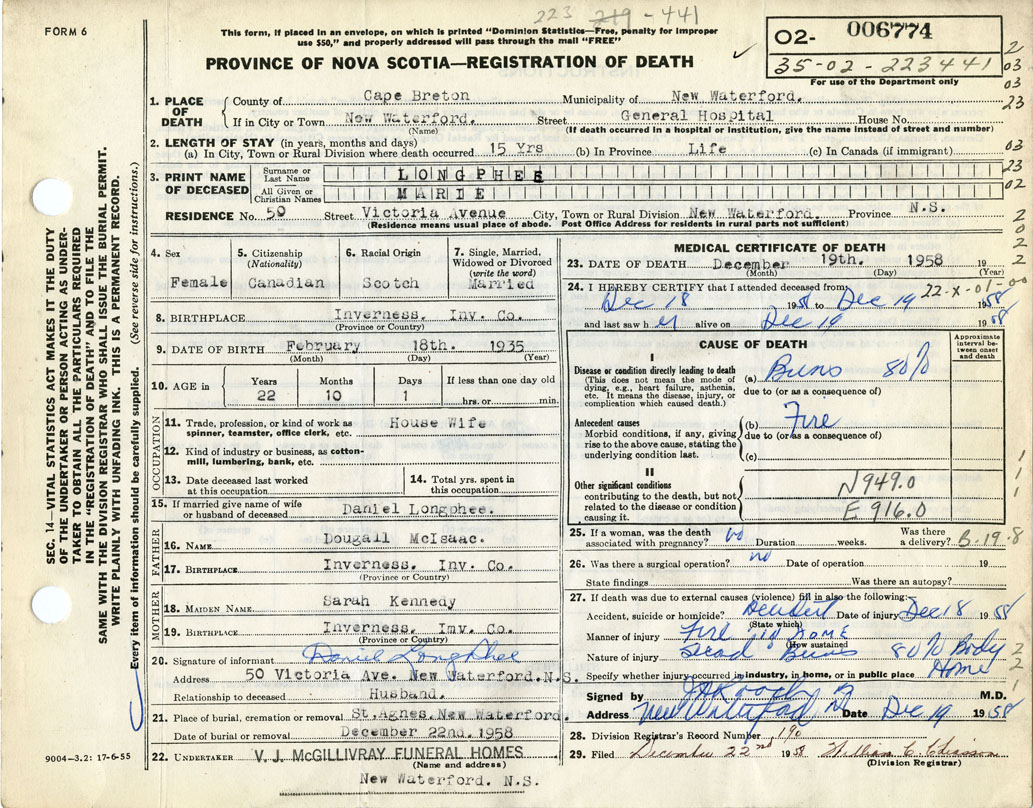 223 219 - 441
FORM 6
This form, if placed in an envelope, on which is printed "Dominion Statistics—Free, penalty for improper
use $50," and properly addressed will pass through the mail "FREE"
02- 006774
35-02-223441
For use of the Department only
PROVINCE OF NOVA SCOTIA—REGISTRATION OF DEATH
2
03
03
23
03
23
02
2
0
2
2
1
1
1
2
2
1
SEC. 14—VITAL STATISTICS ACT MAKES IT THE DUTY
OF THE UNDERTAKER OR PERSON ACTING AS UNDER-
TAKER TO OBTAIN ALL THE PARTICULARS REQUIRED
IN THE "REGISTRATION OF DEATH" AND TO FILE THE
SAME WITH THE DIVISION REGISTRAR WHO SHALL ISSUE THE BURIAL PERMIT.
WRITE PLAINLY WITH UNFADING INK. THIS IS A PERMANENT RECORD.
Every item of information should be carefully supplied. (See reverse side for instructions.)
1. PLACE OF DEATH County of Cape Breton Municipality of New Waterford.
If in City or Town New Waterford. Street General Hospital House No.
(Name) (If death occurred in a hospital or institution, give the name instead of street and number)
2. LENGTH OF STAY (in years, months and days)
(a) In City, Town or Rural Division where death occurred 15 Yrs (b) In Province Life (c) In Canada (if immigrant)
3. PRINT NAME OF DECEASED Surname or Last Name LONGPHEE
All Given or Christian Names MARIE
RESIDENCE No. 50 Street Victoria Avenue City, Town or Rural Division New Waterford. Province N.S.
(Residence means usual place of abode. Post Office Address for residents in rural parts not sufficient)
4. Sex Female
5. Citizenship (Nationality) Canadian
6. Racial Origin Scotch
7. Single, Married, Widowed or Divorced (write the word) Married
8. BIRTHPLACE Inverness. Inv. Co.
(Province or Country)
9. DATE OF BIRTH February 18th. 1935
(Month) (Day) (Year)
10. AGE in Years 22 Months 10 Days 1 If less than one day old hrs. or min.
OCCUPATION
11. Trade, profession, or kind of work as spinner, teamster, office clerk, etc. House Wife
12. Kind of industry or business, as cotton-mill, lumbering, bank, etc.
13. Date deceased last worked at this occupation
14. Total yrs. spent in this occupation
15. If married give name of wife or husband of deceased Daniel Longphee.
FATHER
16. NAME Dougall McIsaac.
17. BIRTHPLACE Inverness. Inv. Co.
(Province or Country)
MOTHER
18. MAIDEN NAME Sarah Kennedy
19. BIRTHPLACE Inverness. Imv. Co.
(Province or Country)
20. Signature of informant Daniel Longphee
Address 50 Victoria Ave. New Waterford. N.S.
Relationship to deceased Husband.
21. Place of burial, cremation or removal St. Agnes. New Waterford.
Date of burial or removal December 22nd. 1958
22. UNDERTAKER V. J. McGILLIVRAY FUNERAL HOMES
(Name and address)
New Waterford. N.S.
9004—3.2: 17-6-55
MEDICAL CERTIFICATE OF DEATH
23. DATE OF DEATH December 19th. 1958 19
(Month) (Day) (Year)
24. I HEREBY CERTIFY that I attended deceased from 22-X-01-00
Dec 18 1958 to Dec 19 1958
and last saw her alive on Dec 19 1958
CAUSE OF DEATH
Approximate interval between onset and death
I
Disease or condition directly leading to death (a) Burns 80%
(This does not mean the mode of dying, e.g., heart failure, asthenia, etc. It means the disease, injury, or complication which caused death.)
due to (or as a consequence of)
Antecedent causes (b) Fire
Morbid conditions, if any, giving rise to the above cause, stating the underlying condition last.
due to (or as a consequence of)
(c)
II
Other significant conditions contributing to the death, but not related to the disease or condition causing it.
N949.0
E 916.0
25. If a woman, was the death associated with pregnancy? no Duration weeks. Was there a delivery? B-19-8
26. Was there a surgical operation? no Date of operation 19
State findings Was there an autopsy?
27. If death was due to external causes (violence) fill in also the following:
Accident, suicide or homicide? Accident Date of injury Dec 18 1958
(State which)
Manner of injury Fire in HOME
(How sustained)
Nature of injury Burns 80% Body
Specify whether injury occurred in industry, in home, or in public place Home
Signed by M.D.
Address New Waterford Date Dec 19 1958
28. Division Registrar's Record Number 190
29. Filed December 22nd 1958 William C. Chiasson
(Division Registrar)